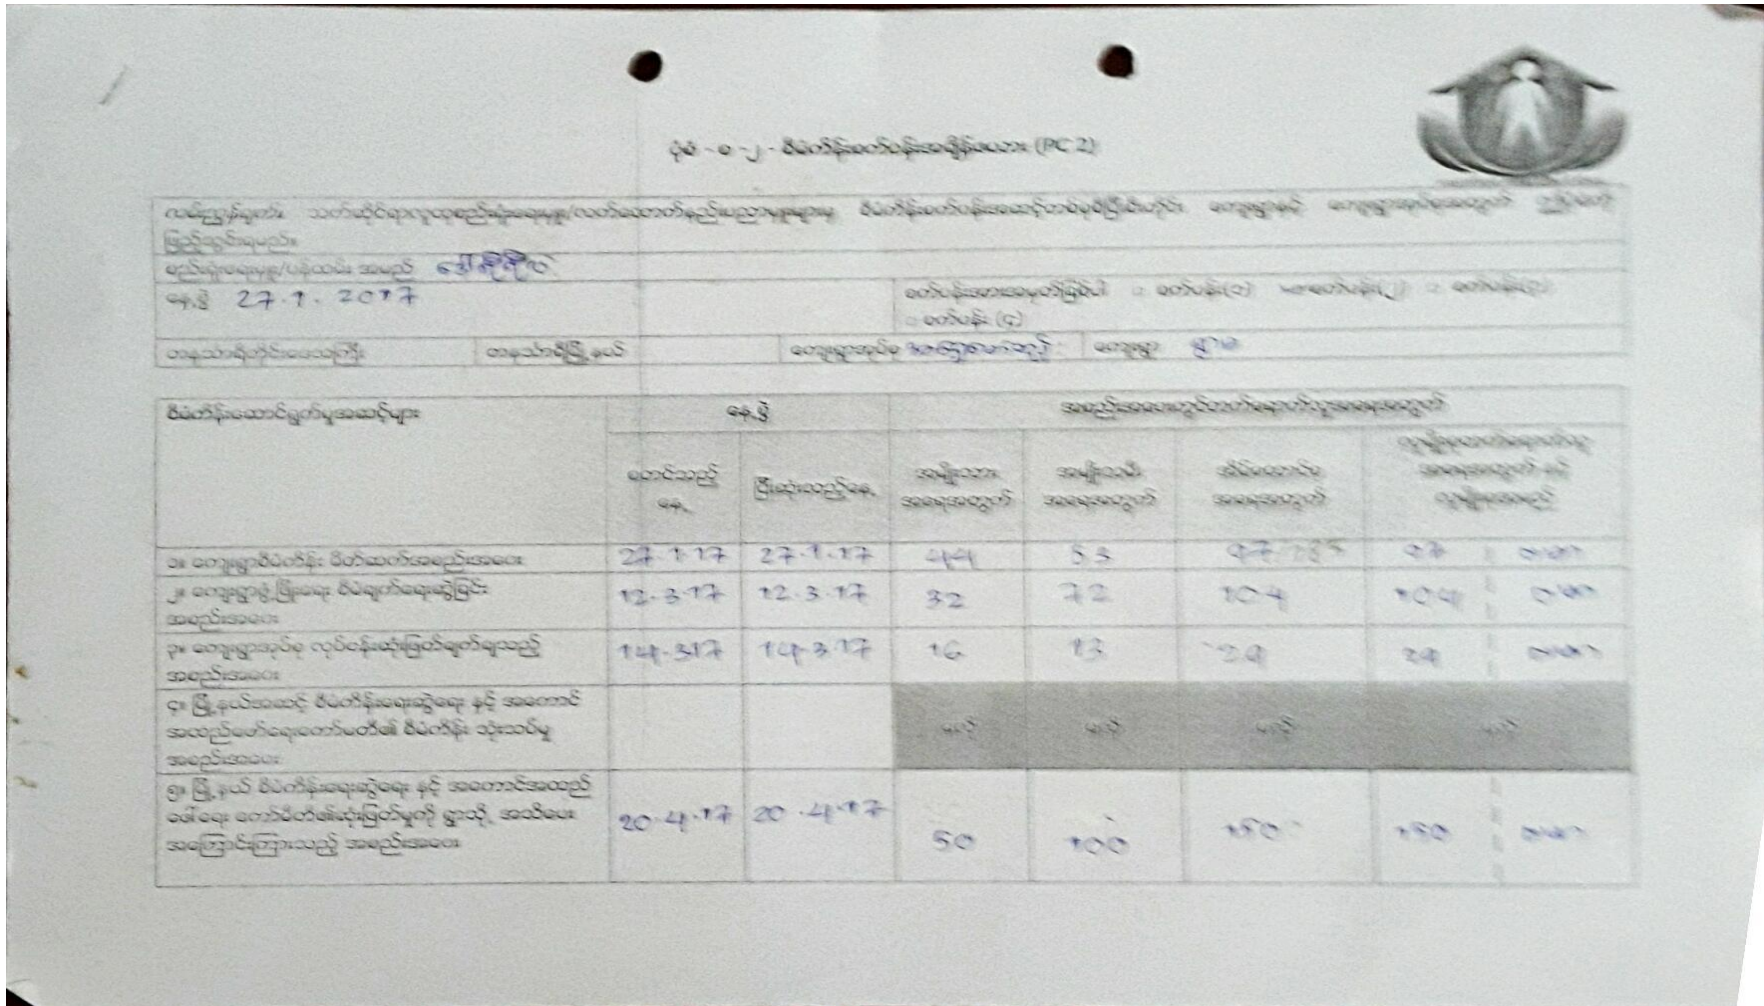 ပုံစံ - စ -၂ - စီမံကိန်းစက်ဝန်းအချိန်ဇယား (PC 2)
လမ်းညွှန်ချက်။ သက်ဆိုင်ရာလူထုစည်းရုံးရေးမှူး/လက်ထောက်နည်းပညာမှူးများမှ စီမံကိန်းစက်ဝန်းအဆင့်တစ်ခုစီပြီးတိုင်း ကျေးရွာနှင့် ကျေးရွာအုပ်စုအတွက်
ဖြည့်သွင်းရမည်။
စည်းရုံးရေးမှူး/ဝန်ထမ်း အမည်
နေ့စွဲ 27.1.2017
စက်ဝန်းအားအမှတ်ခြစ်ပါ စက်ဝန်း(၁) စက်ဝန်း(၂) စက်ဝန်း(၃)
စက်ဝန်း (၄)
တနင်္သာရီတိုင်းဒေသကြီး တနင်္သာရီမြို့နယ် ကျေးရွာအုပ်စု ကျေးရွာ ရွာမ
စီမံကိန်းဆောင်ရွက်မှုအဆင့်များ နေ့စွဲ အစည်းအဝေးတွင်တက်ရောက်သူအရေအတွက်
စတင်သည့် နေ့ ပြီးဆုံးသည့်နေ့ အမျိုးသား အရေအတွက် အမျိုးသမီး အရေအတွက် အိမ်ထောင်စု အရေအတွက် လူမျိုးစုတက်ရောက်သူ အရေအတွက် နှင့် လူမျိုးစုအမည်
၁။ ကျေးရွာစီမံကိန်း မိတ်ဆက်အစည်းအဝေး 27.1.17 27.1.17 44 53 97 97 ဗမာ
၂။ ကျေးရွာဖွံ့ဖြိုးရေး စီမံချက်ရေးဆွဲခြင်း 12.3.17 12.3.17 32 72 104 104 ဗမာ
အစည်းအဝေး
၃။ ကျေးရွာအုပ်စု လုပ်ငန်းဆုံးဖြတ်ချက်ချသည့် 14.3.17 14.3.17 16 13 29 29 ဗမာ
အစည်းအဝေး
၄။ မြို့နယ်အဆင့် စီမံကိန်းရေးဆွဲရေး နှင့် အကောင်
အထည်ဖော်ရေးကော်မတီ၏ စီမံကိန်း သုံးသပ်မှု မလို မလို မလို မလို
အစည်းအဝေး
၅။ မြို့နယ် စီမံကိန်းရေးဆွဲရေး နှင့် အကောင်အထည်
ဖေါ်ရေး ကော်မီတီ၏ဆုံးဖြတ်မှုကို ရွာသို့ အသိပေး 20.4.17 20.4.17 50 100 150 150 ဗမာ
အကြောင်းကြားသည့် အစည်းအဝေး